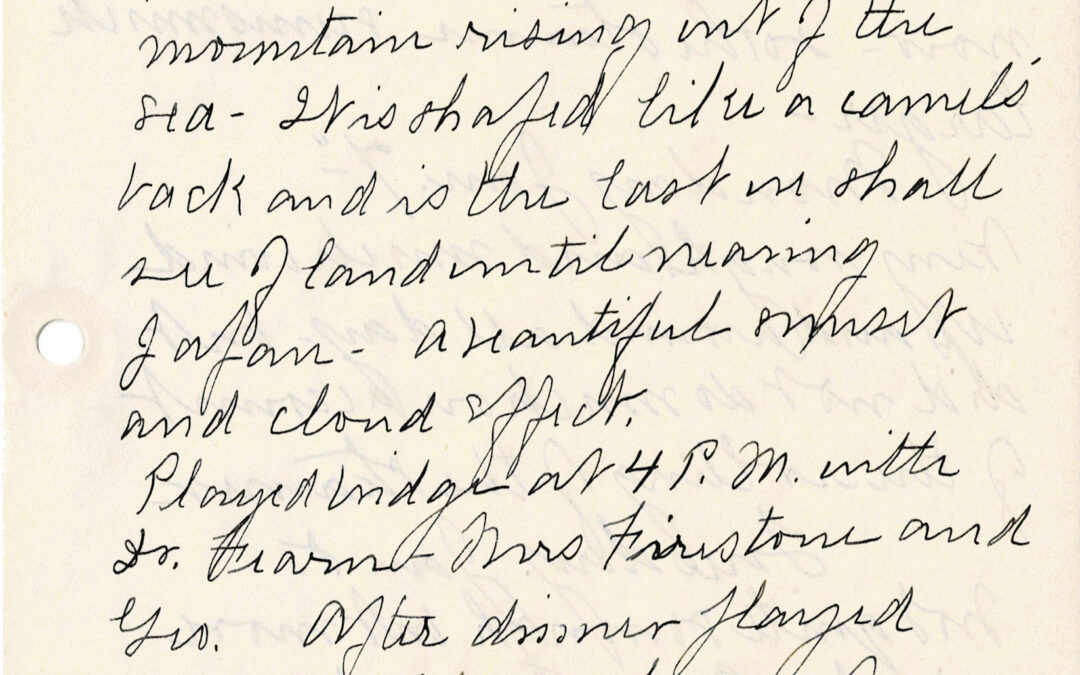 mountain rising out of the
sea - It is shaped like a camel's
back and is the last we shall
see of land until nearing
Japan - A beautiful sunset
and cloud effect.
Played bridge at 4 P.M. with
Dr. Fearn - Mrs Firestone and
Geo. After dinner played